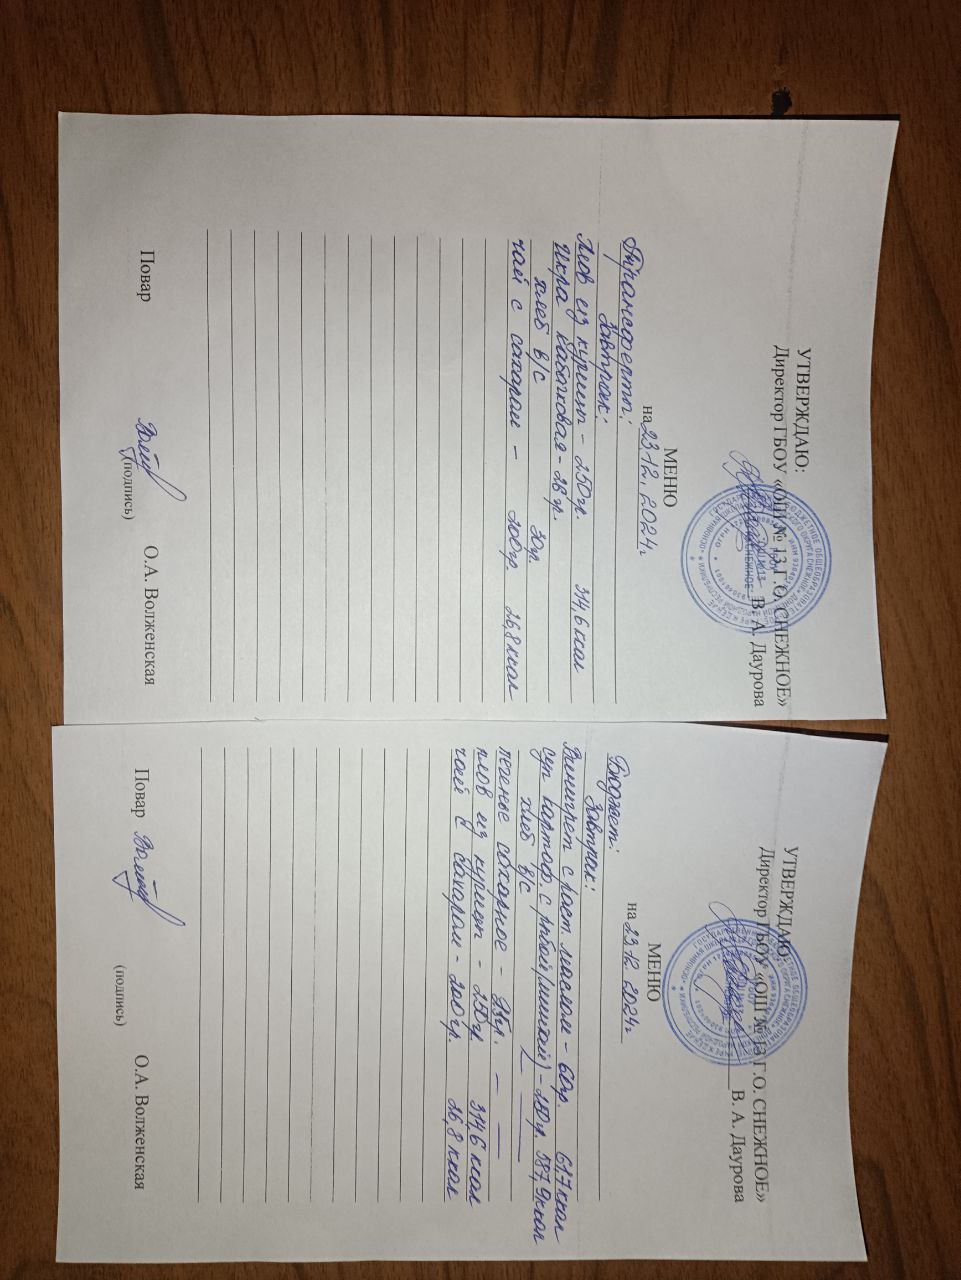 УТВЕРЖДАЮ:
Директор ГБОУ «ОШ № 13 Г.О. СНЕЖНОЕ»
В. А. Даурова
МЕНЮ
на 23.12.2024г
Трансферты:
Завтрак:
Плов из курицы - 250гр. 314,6 ккал
Икра кабачковая - 26гр.
хлеб в/с 30гр.
чай с сахаром - 200гр. 26,8 ккал
Повар (подпись) О.А. Волженская
УТВЕРЖДАЮ:
Директор ГБОУ «ОШ № 13 Г.О. СНЕЖНОЕ»
В. А. Даурова
МЕНЮ
на 23.12.2024г
Бюджет:
Завтрак:
Винигрет с раст. маслом - 60гр. 61,7 ккал
суп картоф. с рыбой (минтай) - 250гр. 587,9 ккал
хлеб в/с
печенье сахарное -
плов из курицы - 250гр. 314,6 ккал
чай с сахаром - 200гр. 26,8 ккал
Повар (подпись) О.А. Волженская